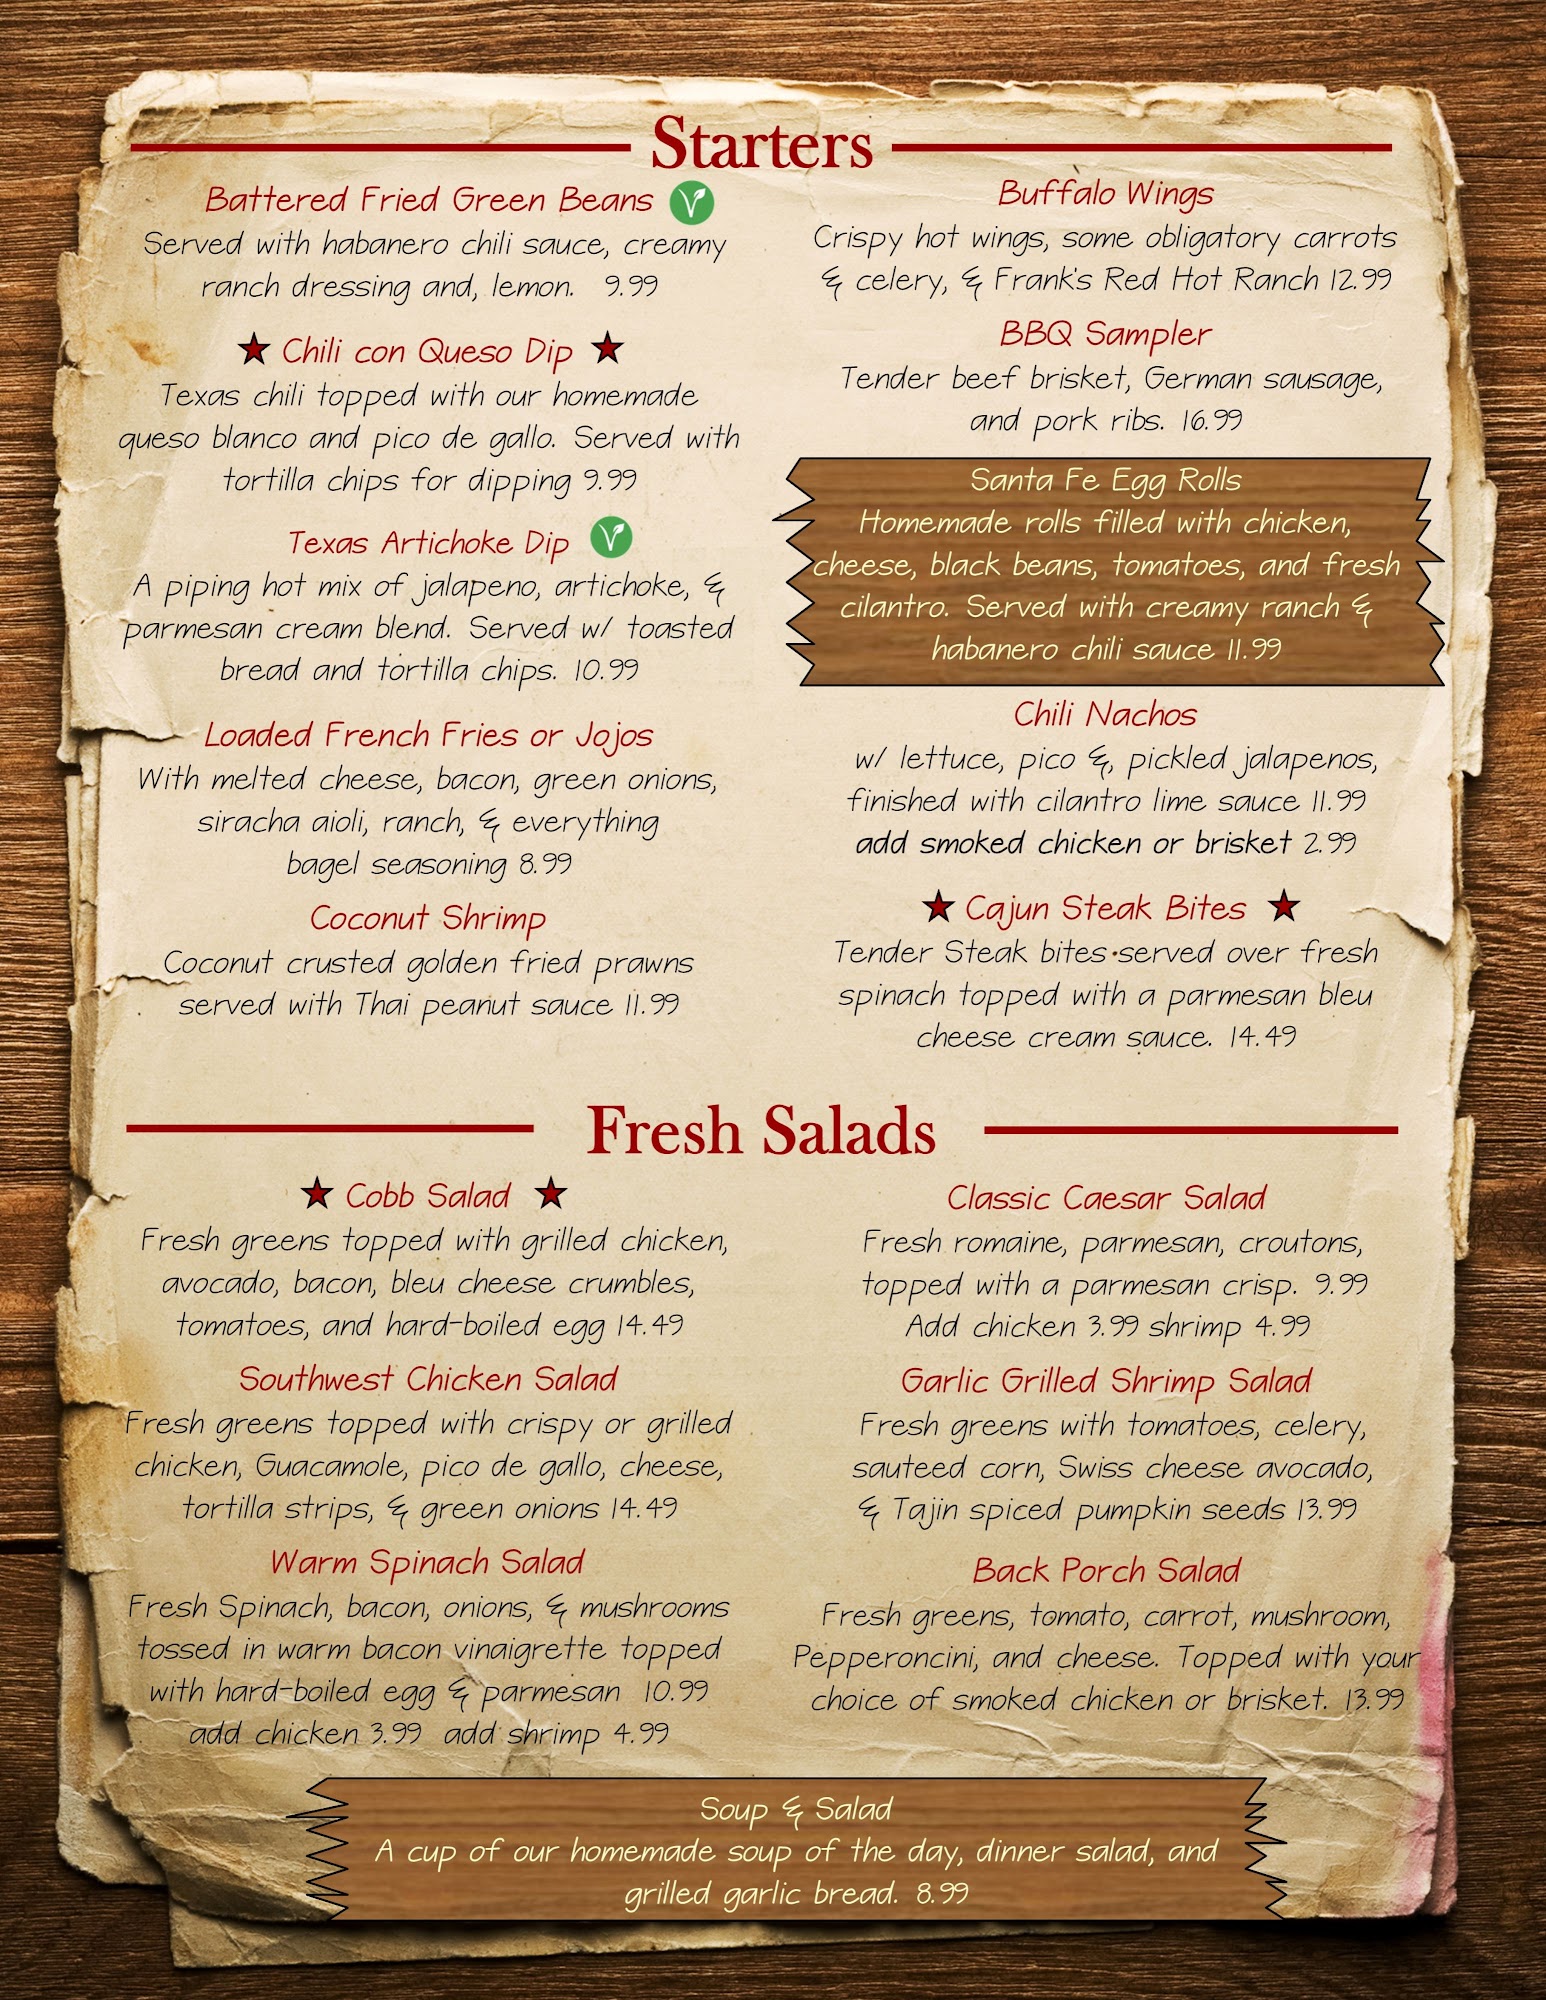 Starters
Battered Fried Green Beans
Served with habanero chili sauce, creamy
ranch dressing and, lemon. 9.99
★ Chili con Queso Dip ★
Texas chili topped with our homemade
queso blanco and pico de gallo. Served with
tortilla chips for dipping 9.99
Texas Artichoke Dip
A piping hot mix of jalapeno, artichoke, &
parmesan cream blend. Served w/ toasted
bread and tortilla chips. 10.99
Loaded French Fries or Jojos
With melted cheese, bacon, green onions,
siracha aioli, ranch, & everything
bagel seasoning 8.99
Coconut Shrimp
Coconut crusted golden fried prawns
served with Thai peanut sauce 11.99
Buffalo Wings
Crispy hot wings, some obligatory carrots
& celery, & Frank's Red Hot Ranch 12.99
BBQ Sampler
Tender beef brisket, German sausage,
and pork ribs. 16.99
Santa Fe Egg Rolls
Homemade rolls filled with chicken,
cheese, black beans, tomatoes, and fresh
cilantro. Served with creamy ranch &
habanero chili sauce 11.99
Chili Nachos
w/ lettuce, pico &, pickled jalapenos,
finished with cilantro lime sauce 11.99
add smoked chicken or brisket 2.99
★ Cajun Steak Bites ★
Tender Steak bites served over fresh
spinach topped with a parmesan bleu
cheese cream sauce. 14.49
Fresh Salads
★ Cobb Salad ★
Fresh greens topped with grilled chicken,
avocado, bacon, bleu cheese crumbles,
tomatoes, and hard-boiled egg 14.49
Southwest Chicken Salad
Fresh greens topped with crispy or grilled
chicken, Guacamole, pico de gallo, cheese,
tortilla strips, & green onions 14.49
Warm Spinach Salad
Fresh Spinach, bacon, onions, & mushrooms
tossed in warm bacon vinaigrette topped
with hard-boiled egg & parmesan 10.99
add chicken 3.99 add shrimp 4.99
Classic Caesar Salad
Fresh romaine, parmesan, croutons,
topped with a parmesan crisp. 9.99
Add chicken 3.99 shrimp 4.99
Garlic Grilled Shrimp Salad
Fresh greens with tomatoes, celery,
sauteed corn, Swiss cheese avocado,
& Tajin spiced pumpkin seeds 13.99
Back Porch Salad
Fresh greens, tomato, carrot, mushroom,
Pepperoncini, and cheese. Topped with your
choice of smoked chicken or brisket. 13.99
Soup & Salad
A cup of our homemade soup of the day, dinner salad, and
grilled garlic bread. 8.99